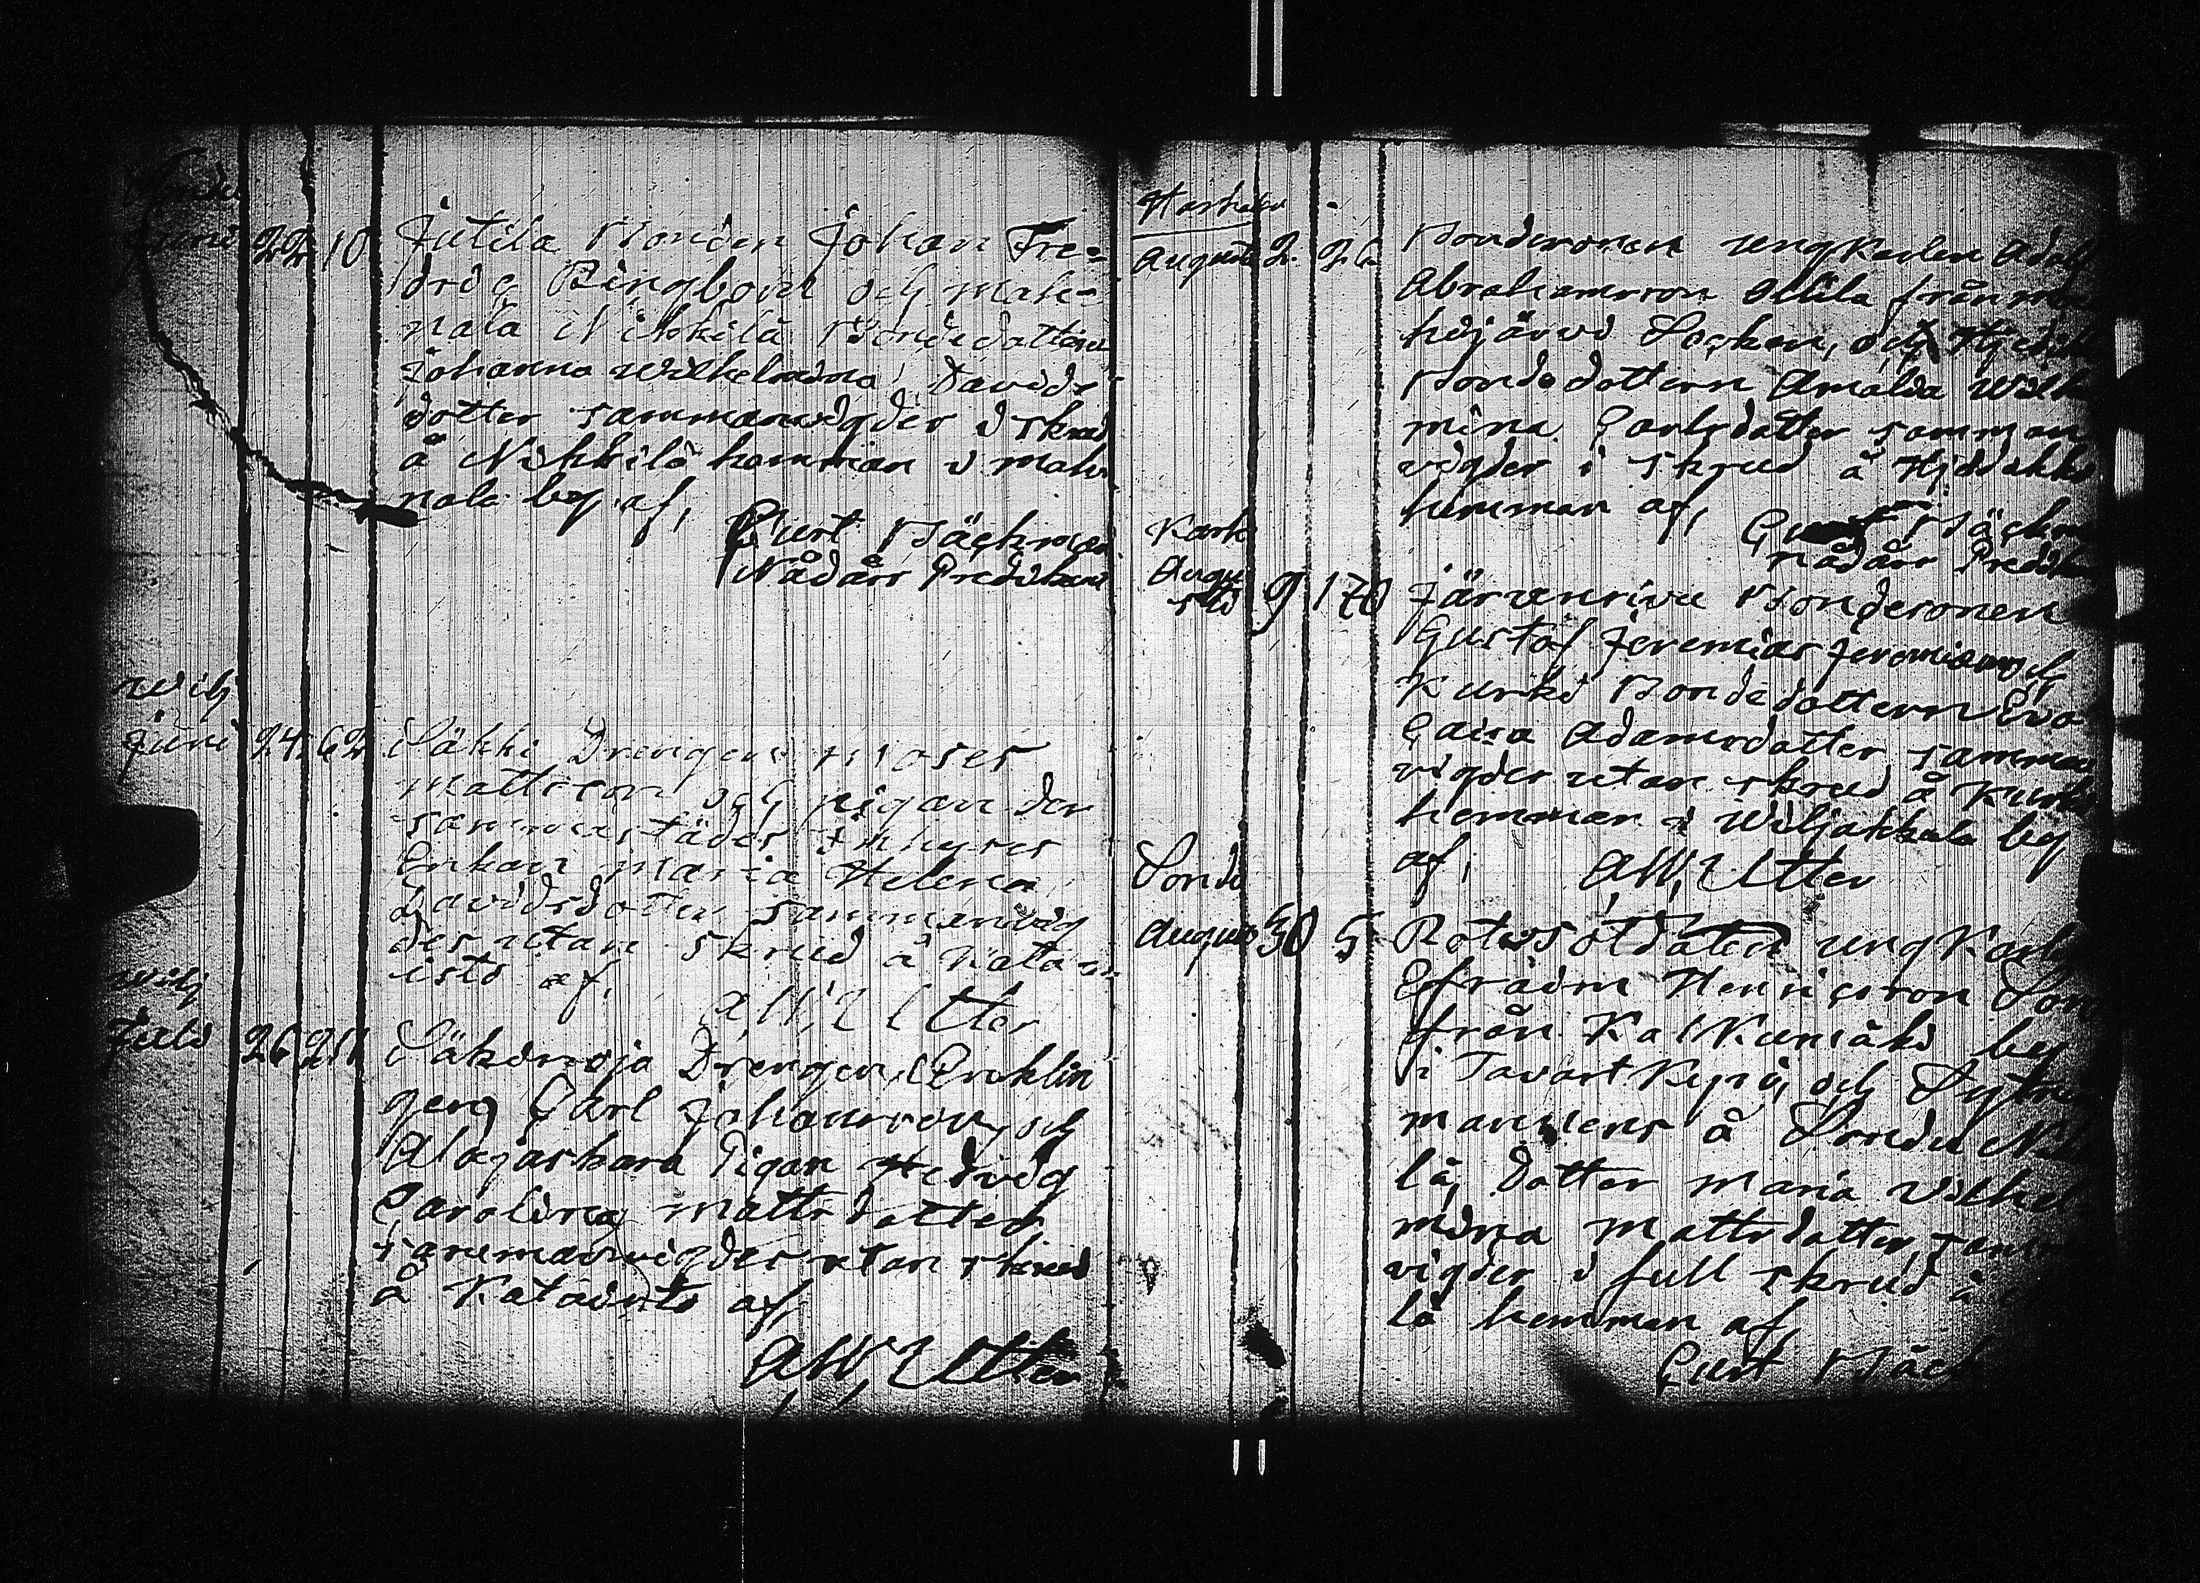 Juni 22 10 Jutila Bonden Johan Fre=
dric Ringbom och Mah=
nala Nikkilä Bondedottren
Johanna Wilhelmina Davids
dotter sammanvigder i skrud
å Nikkilä hemman i Mah
nala by af,
Curt Bäckman
Nådårs Predikant
Wilj
Juni 24. 62 Säkki Drengen Moses
Mattsson och pigan der
sammastädes Inhyses
Enkan Maria Helena
Davidsdotter sammanvig
des utan skrud å Kata
isto af,
A W, Utter
Wilj
Juli 26 211 Säkinoja Drengen Encklin
gen Carl Johansson, och
Alajaskara Pigan Hedvig
Carolina Mattsdotter
sammanvigdes utan skrud
å Kataisto af,
A W, Utter
August 2. Bondesonen ungkarlen
Abrahamsson från
Socken, och
Bondedottern Amalia Wilh
mina Carlsdotter samman
vigder i skrud å
hemman af,
Curt Bäckm
Nådårs Predik
Kark
Augu
sti 9 170 Järvensivu Bondesonen
Gustaf Jeremias Jeremiasson och
Kurki Bondedottern Eva
Caisa Adamsdotter samman
vigder utan skrud å Kurki
hemman i Wiljakkala by
af, A W, Utter
Augusti 30 5 Rotesoldaten ungkarl
Efraim Henricsson
från Kalkunmäki by
i Tavastkyrö, och Sytnings
mannens å
lä, Dotter Maria Vilhel
mina Mattsdotter, samm
vigder i full skrud å
lä hemman af,
Curt Bäck